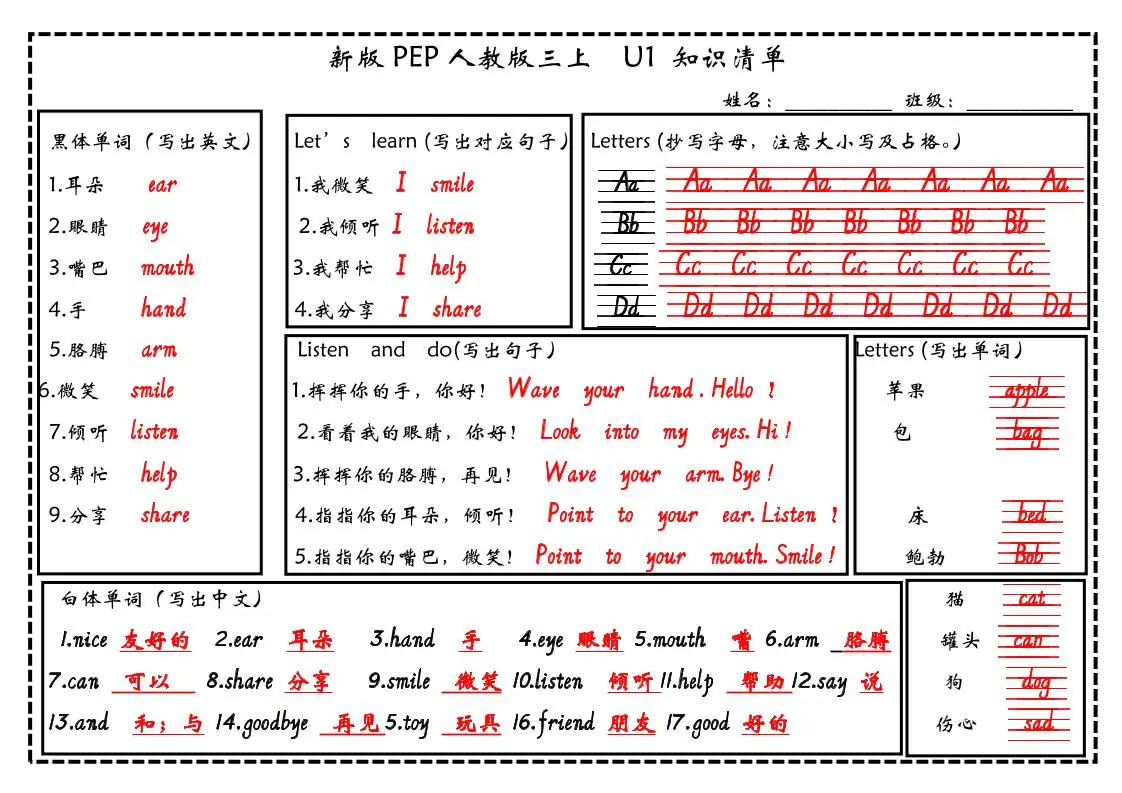 新版PEP人教版三上 U1 知识清单
姓名：__________ 班级：__________
黑体单词（写出英文）
1.耳朵 ear
2.眼睛 eye
3.嘴巴 mouth
4.手 hand
5.胳膊 arm
6.微笑 smile
7.倾听 listen
8.帮忙 help
9.分享 share
Let's learn (写出对应句子)
1.我微笑 I smile
2.我倾听 I listen
3.我帮忙 I help
4.我分享 I share
Letters (抄写字母，注意大小写及占格。)
Aa Aa Aa Aa Aa Aa Aa Aa
Bb Bb Bb Bb Bb Bb Bb Bb
Cc Cc Cc Cc Cc Cc Cc Cc
Dd Dd Dd Dd Dd Dd Dd Dd
Listen and do(写出句子)
1.挥挥你的手，你好！ Wave your hand. Hello !
2.看着我的眼睛，你好！ Look into my eyes. Hi !
3.挥挥你的胳膊，再见！ Wave your arm. Bye !
4.指指你的耳朵，倾听！ Point to your ear. Listen !
5.指指你的嘴巴，微笑！ Point to your mouth. Smile !
Letters (写出单词)
苹果 apple
包 bag
床 bed
鲍勃 Bob
猫 cat
罐头 can
狗 dog
伤心 sad
白体单词（写出中文）
1.nice 友好的 2.ear 耳朵 3.hand 手 4.eye 眼睛 5.mouth 嘴 6.arm 胳膊
7.can 可以 8.share 分享 9.smile 微笑 10.listen 倾听 11.help 帮助 12.say 说
13.and 和；与 14.goodbye 再见 5.toy 玩具 16.friend 朋友 17.good 好的